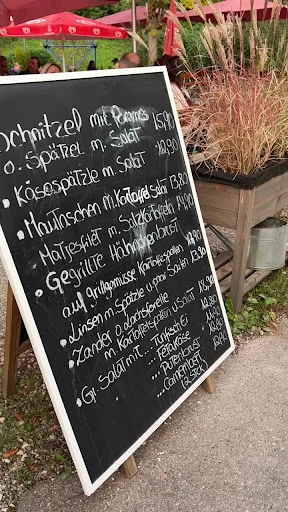 Schnitzel mit Pommes
o. Spätzel m. Salat 15,90
• Käsespätzle m. Salat 12,90
• Maultaschen m. Kartoffel Salat 13,80
• Matjesfilet m. Salzkartoffeln
• Gegrillte Hähnchenbrust
auf Grillgemüse Kartoffelspalten
• Linsen m. Spätzle u. paar Saiten 13,90
• Zander o. Lachsfilet
m. Kartoffel-Salat u. Salat
• Gr. Salat mit ... Tunfisch + Ei
... Fetakäse
... Putenbrust
... Camembert
(2 Stck)